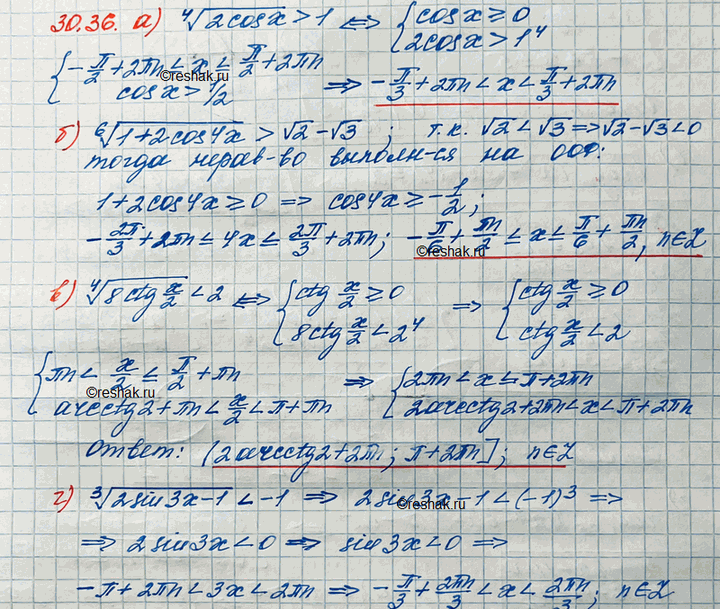 30.36. а) ⁴√(2cosx) > 1 ⟺ { cosx ≥ 0
2cosx > 1⁴
{ -π/2 + 2πn ≤ x ≤ π/2 + 2πn
cosx > 1/2 ⟹ -π/3 + 2πn < x < π/3 + 2πn
©reshak.ru
б) ⁶√(1+2cos4x) > √2 - √3 ; т.к. √2 < √3 ⟹ √2 - √3 < 0
тогда нерав-во выполн-ся на ООФ:
1 + 2cos4x ≥ 0 ⟹ cos4x ≥ -1/2 ;
-2π/3 + 2πn ≤ 4x ≤ 2π/3 + 2πn; -π/6 + πn/2 ≤ x ≤ π/6 + πn/2, n∈Z
©reshak.ru
в) ⁴√(8ctg x/2) < 2 ⟺ { ctg x/2 ≥ 0
8ctg x/2 < 2⁴
⟹ { ctg x/2 ≥ 0
ctg x/2 < 2
{ πn < x/2 ≤ π/2 + πn
arcctg2 + πn < x/2 < π + πn
©reshak.ru
⟹ { 2πn < x ≤ π + 2πn
2arcctg2 + 2πn < x < π + 2πn
Ответ: (2arcctg2 + 2πn ; π + 2πn] ; n∈Z
г) ³√(2sin3x - 1) < -1 ⟹ 2sin3x - 1 < (-1)³ ⟹
©reshak.ru
⟹ 2sin3x < 0 ⟹ sin3x < 0 ⟹
-π + 2πn < 3x < 2πn ⟹ -π/3 + 2πn/3 < x < 2πn/3 ; n∈Z